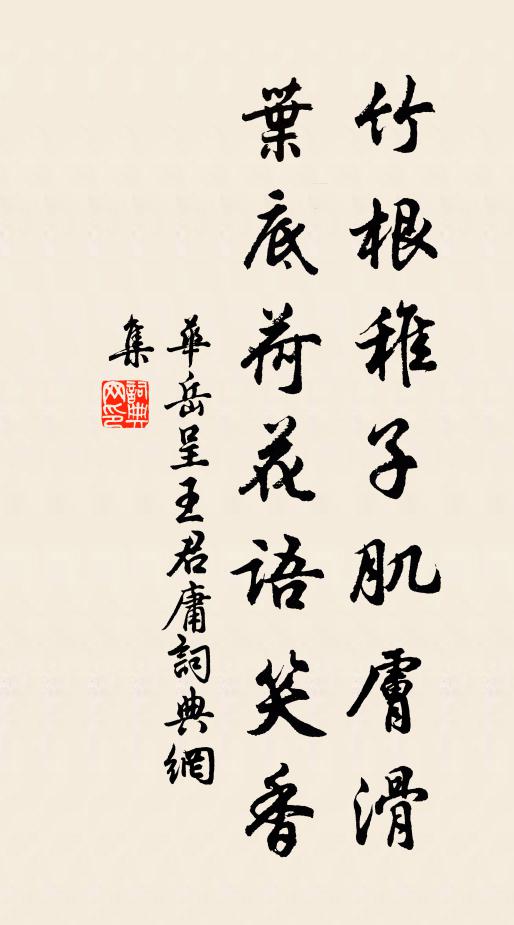 竹根稚子肌膚滑
葉底荷花語笑香
華岳呈王君庸詞典網
集
詞典網印